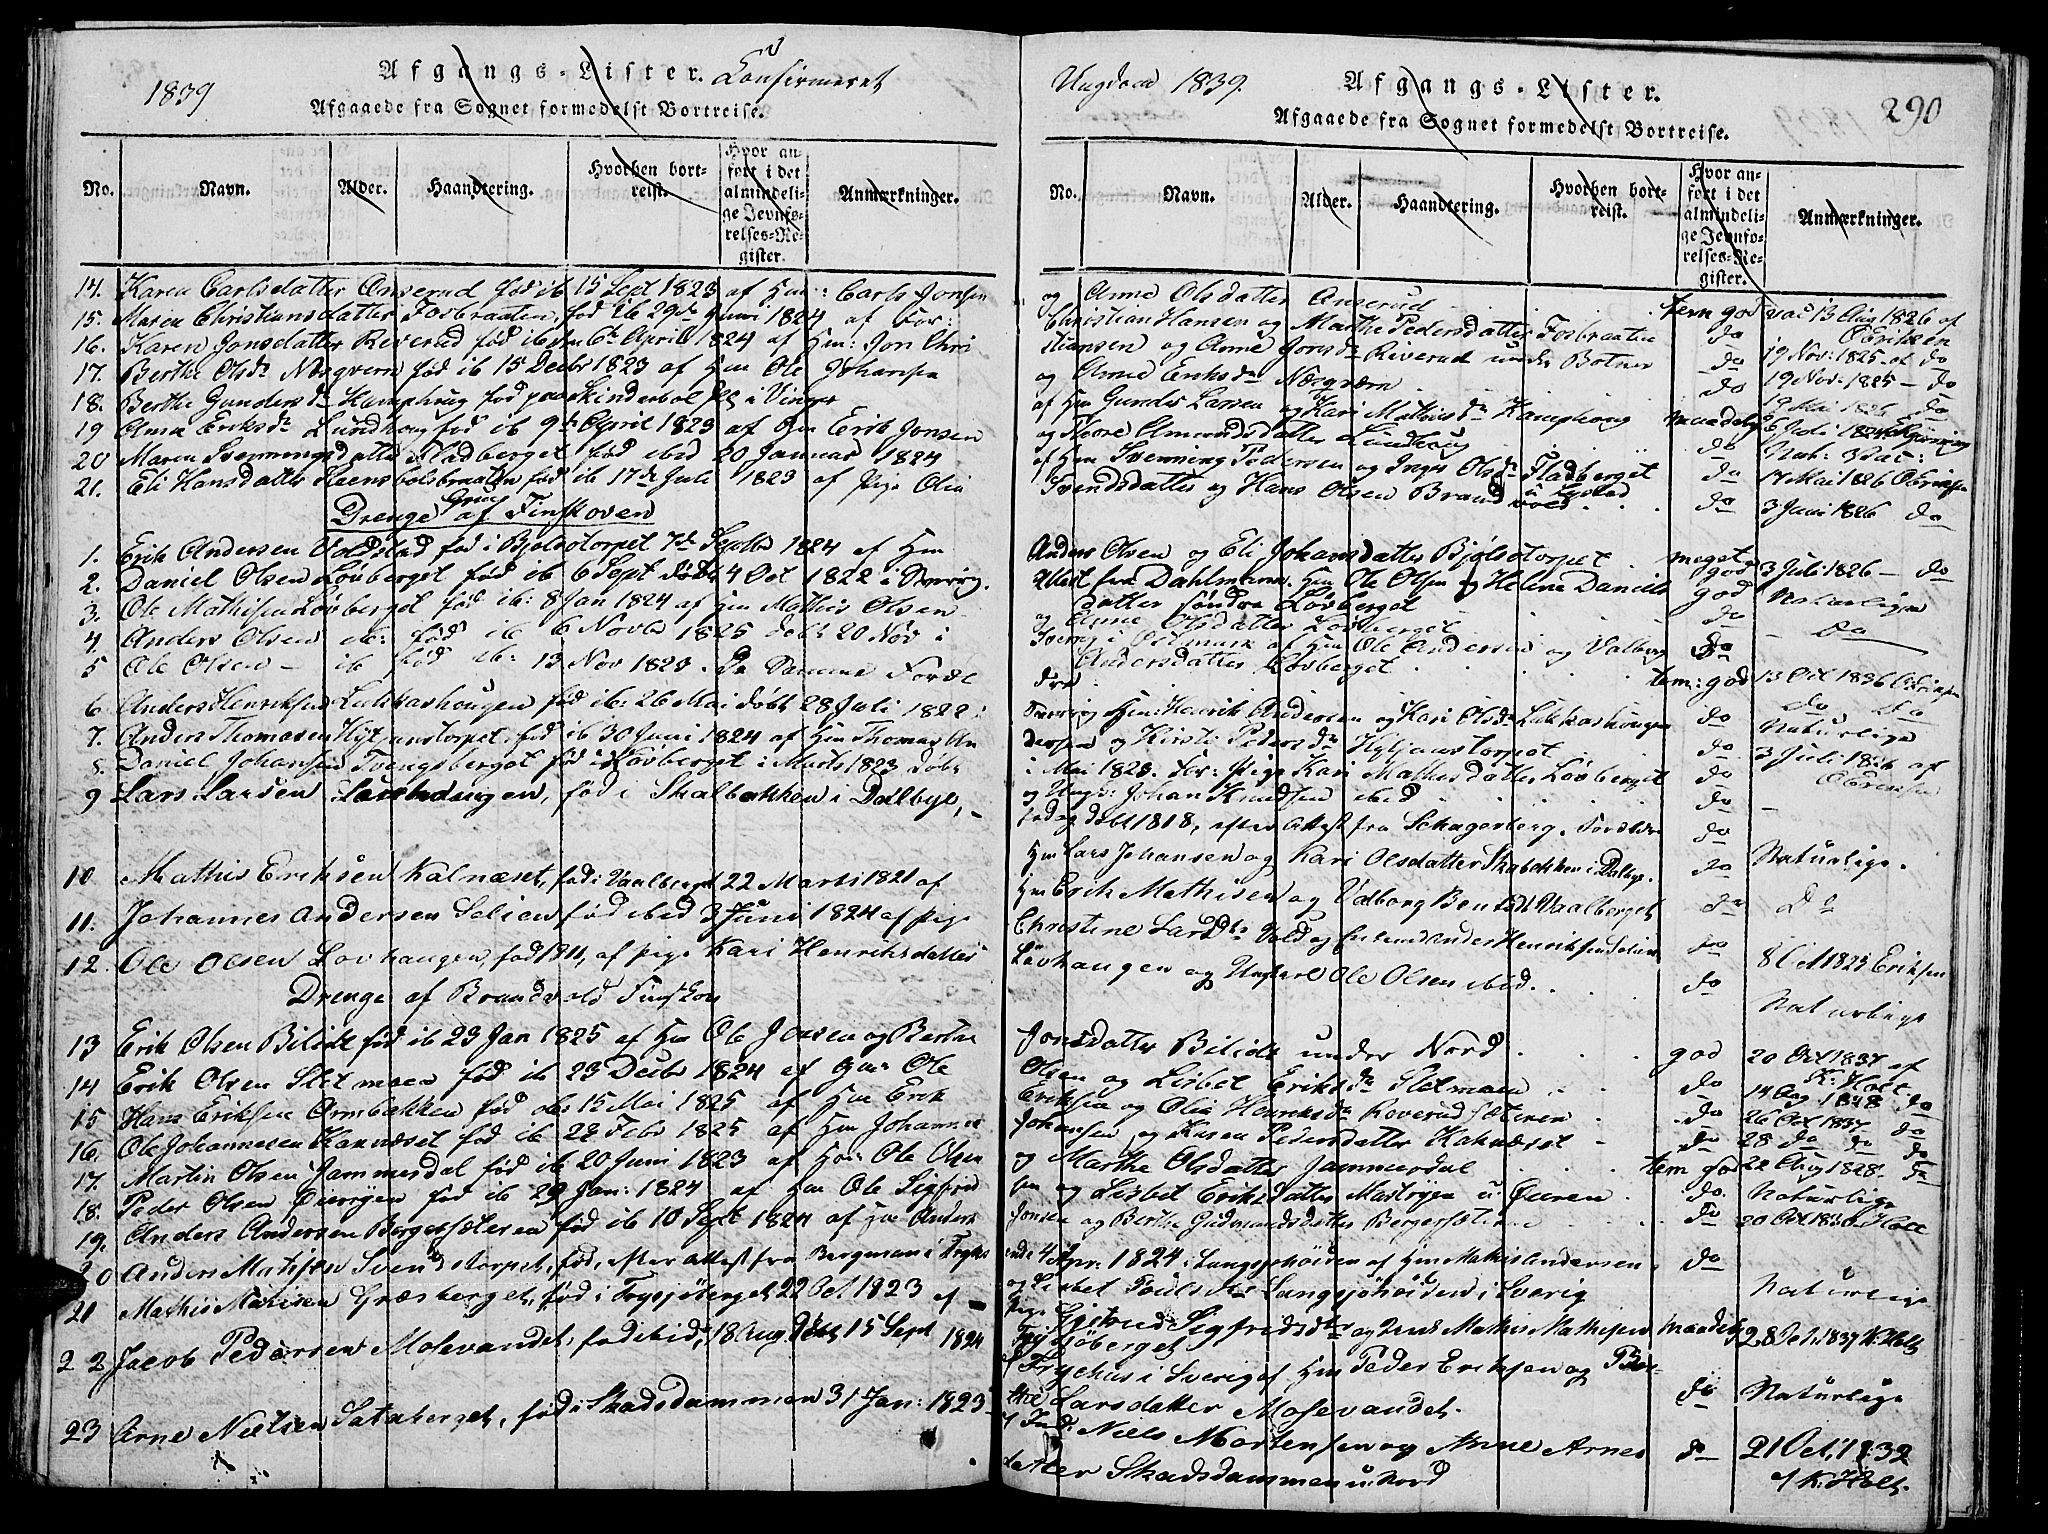 1839
Afgangs-Lister. Confirmeret
Afgaaede fra Sognet formedelst Bortreise.
No.
Navn.
Alder.
Haandtering.
Hvorhen bort-
reist.
Hvor an-
ført i det
almindeli-
ge Jevnfø-
relses-Re-
gister.
Anmærkninger.
14. Karen Carlsdatter Anserud fød ib 15 Sept 1823 af Hm: Carl Jonsen
15. Maren Christiansdatter Fosbraaten, fød ib 29de Juni 1824 af For:
16. Karen Jonsdatter Riverud fød ib 6te April 1824 af Hm: Jon Chri
17. Berthe Olsdr Næsqvern fød ib 15 Decbr 1823 af Hm Ole Johansen
18. Berthe Gundersdr Kamphoug fød paa Skinderbøl i Vinger
19 Anna Eriksdr Lundhoug fød ib 9de April 1823 af Hm Erik Jonsen
20 Maren Svenningsdatter Fladberget fød ibid 20 Januar 1824
21. Eli Hansdatter fød ib 17de Juli 1823 af Pige Olia
Drenge af Grue Finskoven
1. Erik Andersen Voldstad fød i Bjølsotorpet 7de Septbr 1824 af Hm
2. Daniel Olsen Løvberget fød ib 6 Sept døbt 4 Oct 1822 i Sverrig.
3. Ole Mathisen Løvberget fød ib: 8 Jan 1824 af Hm Mathis Olsen
4 Anders Olsen ib: fød ib 6 Novbr 1825 døbt 20 Nov i
5 Ole Olsen - ib fød ib: 13 Nov 1823. De Samme Foræl
6 Anders Henriksen Lukkashougen fød ib: 26 Mai døbt 28 Juli 1822 i
7. Anders Thomasen Hytjanstorpet fød ib 30 Juni 1824 af Hm Thomas An
8. Daniel Johansen Tvengsberget fød i Løvberget i Marts 1823 døbt
9 Lars Larsen Lauhaugen, fød i Skalbakken i Dalbye, -
10 Mathis Eriksen Kalnæset, fød i Vaalberget 22 Marts 1821 af
11. Johannes Andersen Solien fød ibid 3 Juni 1824 af pige
12. Ole Olsen Løvhaugen, fød 1811, af pige Kari Henriksdatter
Drenge af Brandvold Finskov
13 Erik Olsen Bilidt fød ib 23 Jan 1825 af Hm Ole Jonsen og Berthe
14 Erik Olsen Sletmoen fød ib 23 Decbr 1824 af Hm: Ole
15 Hans Eriksen Ormbakken fød ib 15 Mai 1825 af Hm Erik
16. Ole Johannesen Kalnæset fød ib 22 Febr 1825 af Hm Johannes
17. Martin Olsen Jammerdal fød ib 20 Juni 1823 af Hm: Ole Olsen
18. Peder Olsen Øierøyen fød ib 29 Jan: 1824 af Hm Ole Sigfred
19. Anders Andersen Bergersæteren fød ib 10 Sept 1824 af Hm Anders
20 Anders Matisen Svendstorpet, fød, efter attest fra Bergman i Frykse
21 Mathis Matisen Græsberget, fød i Frysjøberget 22 Oct 1823 af -
22 Jacob Pedersen Mosevandet, fød ibid, 18 Aug. døbt 15 Sept 1824
23 Arne Nielsen Sataberget, fød i Skadsdammen 31 Jan: 1823
Ungdom 1839.
Afgangs-Lister.
290
Afgaaede fra Sognet formedelst Bortreise.
No.
Navn.
Alder.
Haandtering.
Hvorhen bort-
reist.
Hvor an-
ført i det
almindeli-
ge Jevnfø-
relses-Re-
gister.
Anmærkninger.
og Anne Olsdatter Anserud . . tem god vac 13 Aug 1826 af
Christian Hansen og Marthe Pedersdatter Fosbraaten do
tiansen og Anne Jonsdr Riverud under Botner do 19 Nov: 1825 af do
og Anne Eriksdr Næsqværn . do 19 Nov: 1825 - do
af Hm Gunder Larsen og Kari Mathisdr Kamphoug maadelig
og Thore Amundsdatter Lundhoug do
af Hm Svenning Pedersen og Inger Olsdr Fladberget do 14 Mai 1826
Svendsdatter og Hans Olsen Brandvold . . . do 3 Juni 1826 do
Anders Olsen og Eli Johansdatter Bjølsotorpet . meget god 3 Juli 1826 - do
Attest fra Dahlmann. Hm Ole Olsen og Helene Daniels god Naturlige
datter søndre Løvberget
og Anne Olsdatter Løvberget do do
Sverrig i Østmark af Hm Ole Andersen og Valborg do
Andersdatter Løvberget
dre . . . tem: god 13 Oct 1836
Sverrig Hm: Henrik Andersen og Kari Olsdr Lukkashougen do Naturlige
dersen og Kirsti Pedersdr Hytjanstorpet do 3 Juli 1826 af
i Mai 1823. For: Pige Kari Mathisdatter Løvberget do
og Ungk: Johan Knudsen ibid . . do
fød og døbt 1818, efter Attest fra Schagerberg. Foræld: do
Hm Lars Johansen og Kari Olsdatter Skalbakken i Dalbye. do Naturlige.
Hm Erik Mathisen og Valborg Vaalberget do Do
Christine Larsdtr Vold og Anders Henriksen Solien do 8 Oct 1825 Eriksen
Løvhaugen og Ungkarl Ole Olsen ibid. . . do
Naturlige
Jonsdatter Bilidt under Nord . . god 20 Oct 1837 af
Olsen og Lisbet Eriksdr Sletmoen . . do K: Holt
Eriksen og Olia Henriksdr Roverudsæteren do 14 Aug 1848 do
Johansen og Karen Pedersdatter Kalnæset - do 26 Oct 1837 do
og Marthe Olsdatter Jammerdal . . tem god 28 do do
sen og Lisbet Eriksdatter Mastrøyen u: Øieren . do 22 Aug 1828. do
Jonsen og Berthe Gudmundsdatter Bergersæteren do Naturlige
ende 4 Apr: 1824 i Langsjøhøiden af Hm Mathis Andersen . do
og Lisbet Poulsdtr Langsjøhøiden i Sverig Naturlige
pige Sigfridsdtr og Mathis Mathisen maadelig 28 Oct. 1837 K: Holt
Frysjøberget
af Frychus i Sverige af Hm Peder Eriksen og Ber-
the Larsdatter Mosevandet. do Naturlige
Niels Mortensen og Anne Arnes do 21 Oct. 1832
datter Skadsdammen u: Nord af K: Holt.